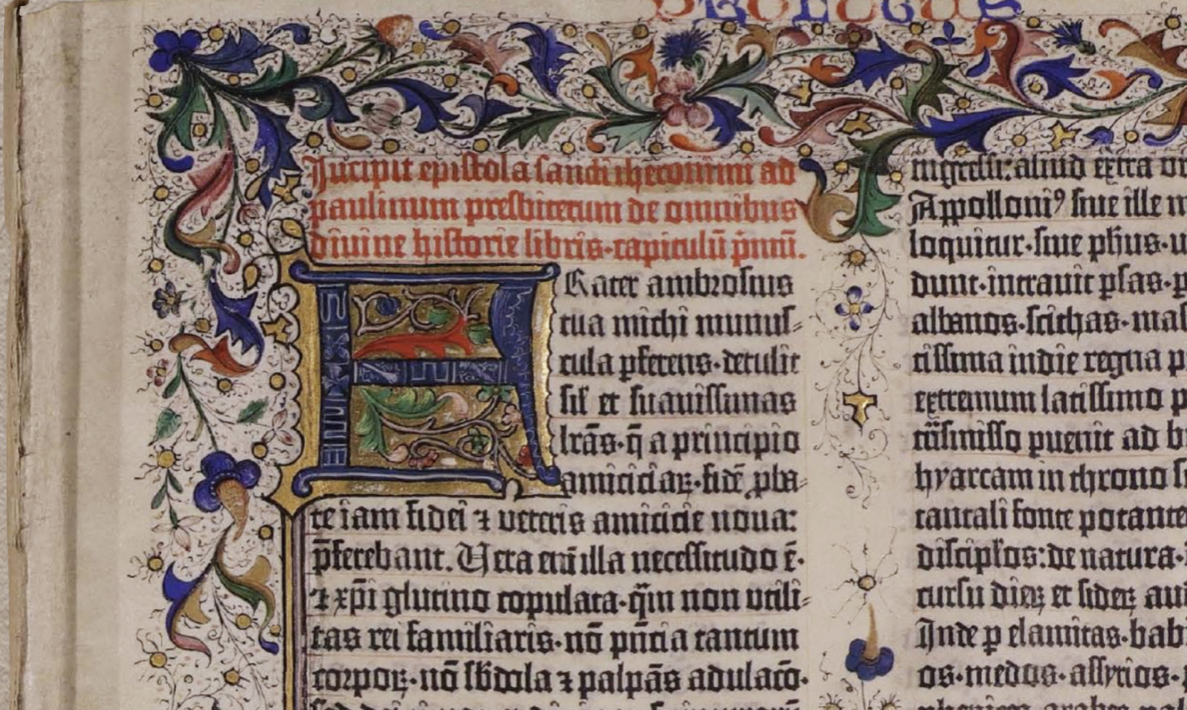 PROLOGUS
Jncipit epistola sancti iheronimi ad
paulinum presbiterum de omnibus
diuine historie libris·capitulū p̄mū.
FRater ambrosius
tua michi munus⸗
cula ꝑferens·detulit
sił et suauissimas
lrās·q̄ a principio
amicicīaꝝ·fidē ꝓba⸗
te iam fidei ⁊ veteris amicicie noua:
p̄ferebant. Uera em̄ illa necessitudo ē·
⁊ xp̄i glutino copulata·q̄m non vtili⸗
tas rei familiaris·nō pn̄cia tantum
corpoꝝ·nō sb̄dola ⁊ palpās adulaco·
ingressi: aliud extra
Appolloniꝰ siue ille
loquitur·siue ph̄us·
dunt·intrauit ꝑsas·
albanos·scithas·
tissima indie regna
extremum latissimo
trāsmisso ꝑuenit ad
hyarcam in throno
tantali fonte
discipl̄os: de natura·
cursu dieꝝ et sideꝝ
Jnde ꝑ elamitas·
os·medos·assyrios·